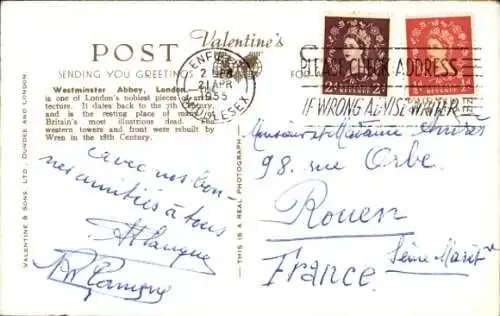 POST
Valentine's
CARD
SENDING YOU GREETINGS
FOR
Westminster Abbey, London,
is one of London's noblest pieces of architecture. It dates back to the 7th Century,
and is the resting place of many of
Britain's most illustrious dead. The
western towers and front were rebuilt by
Wren in the 18th Century.
VALENTINE & SONS. LTD., DUNDEE AND LONDON.
THIS IS A REAL PHOTOGRAPH
ENFIELD
21 APR
1955
MIDDLESEX
PLEASE CHECK ADDRESS
IF WRONG ADVISE WRITER
REVENUE
avec nos bonnes amitiés à tous
Monsieur et Madame
98. rue Orbe
Rouen
Seine Marit
France